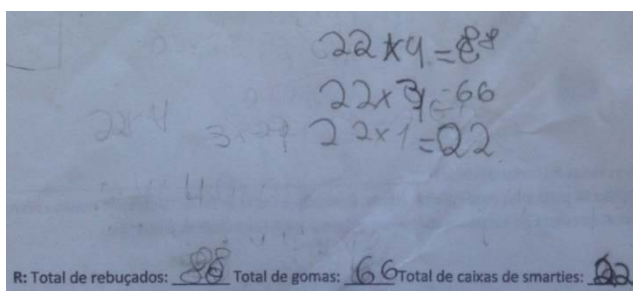 22 x 4 = 88
22 x 3 = 66
22 x 4 3 x 22 22 x 1 = 22
4
R: Total de rebuçados: 88 Total de gomas: 66 Total de caixas de smarties: 22